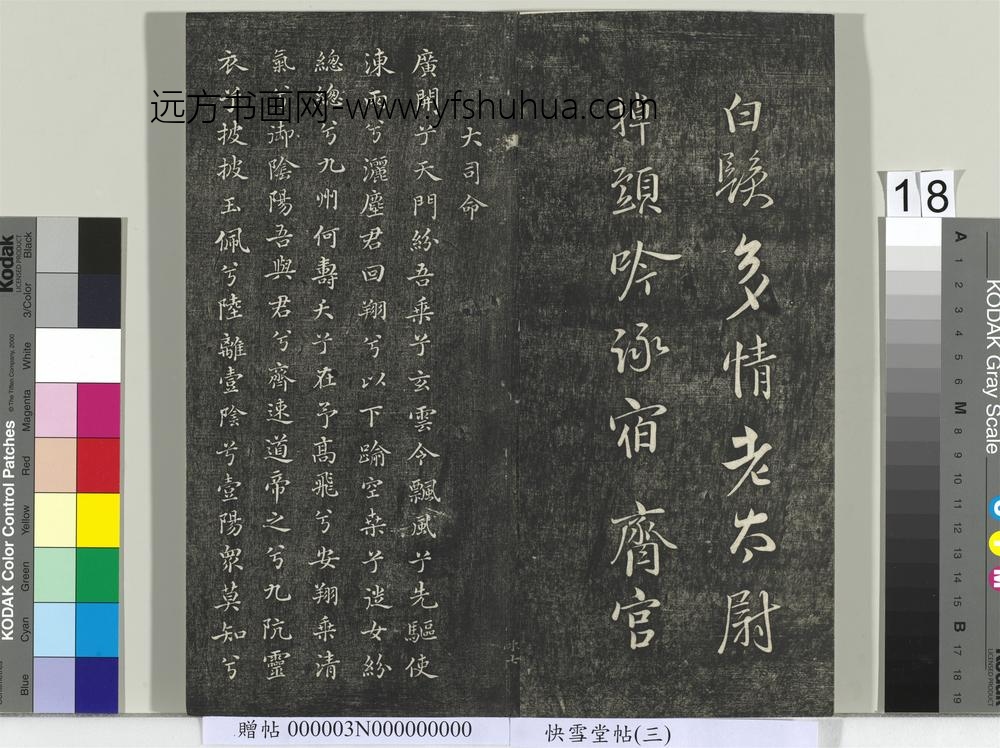 白鬚多情老太尉
掉頭吟詠宿齋官
大司命
廣開兮天門紛吾乗兮玄雲令飄風兮先驅使
涷雨兮灑塵君回翔兮以下踰空桒兮從女紛
總總兮九州何壽夭兮在予髙飛兮安翔乗清
氣兮御陰陽吾與君兮齋速道帝之兮九阬靈
衣兮披披玉佩兮陸離壹陰兮壹陽眾莫知兮
远方书画网-www.yfshuhua.com
18
贈帖 000003N000000000
快雪堂帖(三)
Kodak
LICENSED PRODUCT
KODAK Color Control Patches
© The Tiffen Company, 2000
Blue
Cyan
Green
Yellow
Red
Magenta
White
3/Color
Black
KODAK Gray Scale
A 1 2 3 4 5 6 M 8 9 10 11 12 13 14 15 B 17 18 19